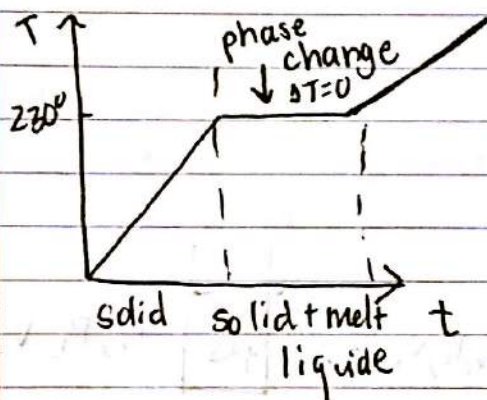 T
phase
change
ΔT=0
230°
solid
solid+melt
t
liquide